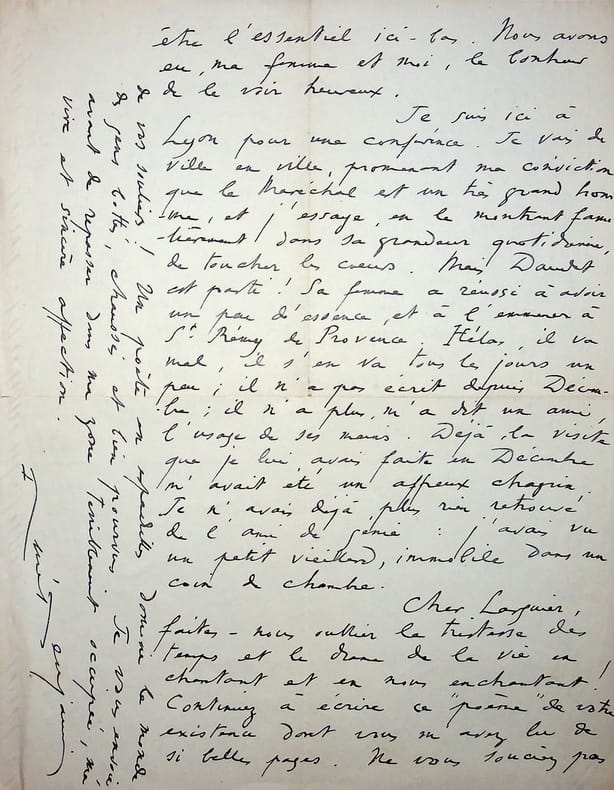 être l'essentiel ici-bas. Nous avons
eu, ma femme et moi, le bonheur
de le voir heureux.
Je suis ici à
Lyon pour une conférence. Je vais de
ville en ville, promenant ma conviction
que le Maréchal est un très grand hom-
me, et j'essaye, en le montrant fami-
lièrement dans sa grandeur quotidienne,
de toucher les cœurs. Mais Daudet
est parti! Sa femme a réussi à avoir
un peu d'essence, et à l'emmener à
St Rémy de Provence. Hélas, il va
mal, il s'en va tous les jours un
peu; il n'a pas écrit depuis Décem-
bre; il n'a plus, m'a dit un ami,
l'usage de ses mains. Déjà, la visite
que je lui avais faite en Décembre
m'avait été un affreux chagrin.
Je n'avais déjà plus rien retrouvé
de l'ami de génie: j'avais vu
un petit vieillard, immobile dans un
coin de chambre.
Cher Larguier,
faites-nous oublier la tristesse des
temps et le drame de la vie en
chantant et en nous enchantant!
Continuez à écrire ce "poème" de votre
existence dont vous m'avez lu de
si belles pages. Ne vous souciez pas
de vos souliers! Un poète en espadrilles domine le monde
des gens bottés, chaussés et bien pourvus. Je vous envoie
avant de repasser dans ma zone tristement occupée, ma
vive et sincère affection.